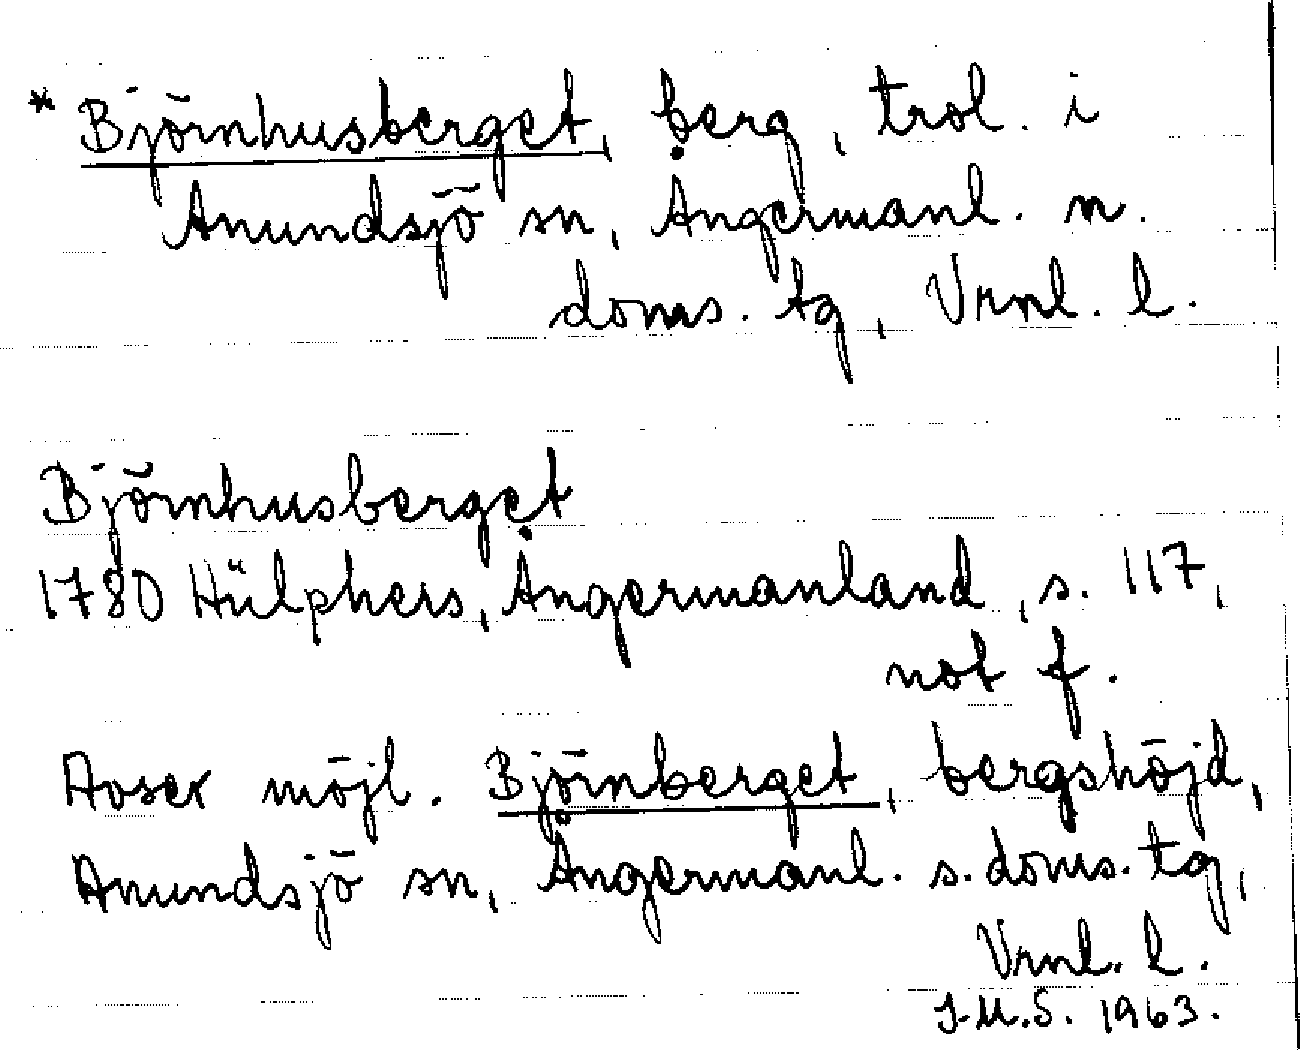 * Björnhusberget, berg, trol. i
Anundsjö sn, Ångermanl. n.
doms. tg, Vrnl. l.
Björnhusberget
1780 Hülphers, Ångermanland, s. 117,
not f.
Avser möjl. Björnberget, bergshöjd,
Anundsjö sn, Ångermanl. s. doms. tg,
Vrnl. l.
J.M.S. 1963.